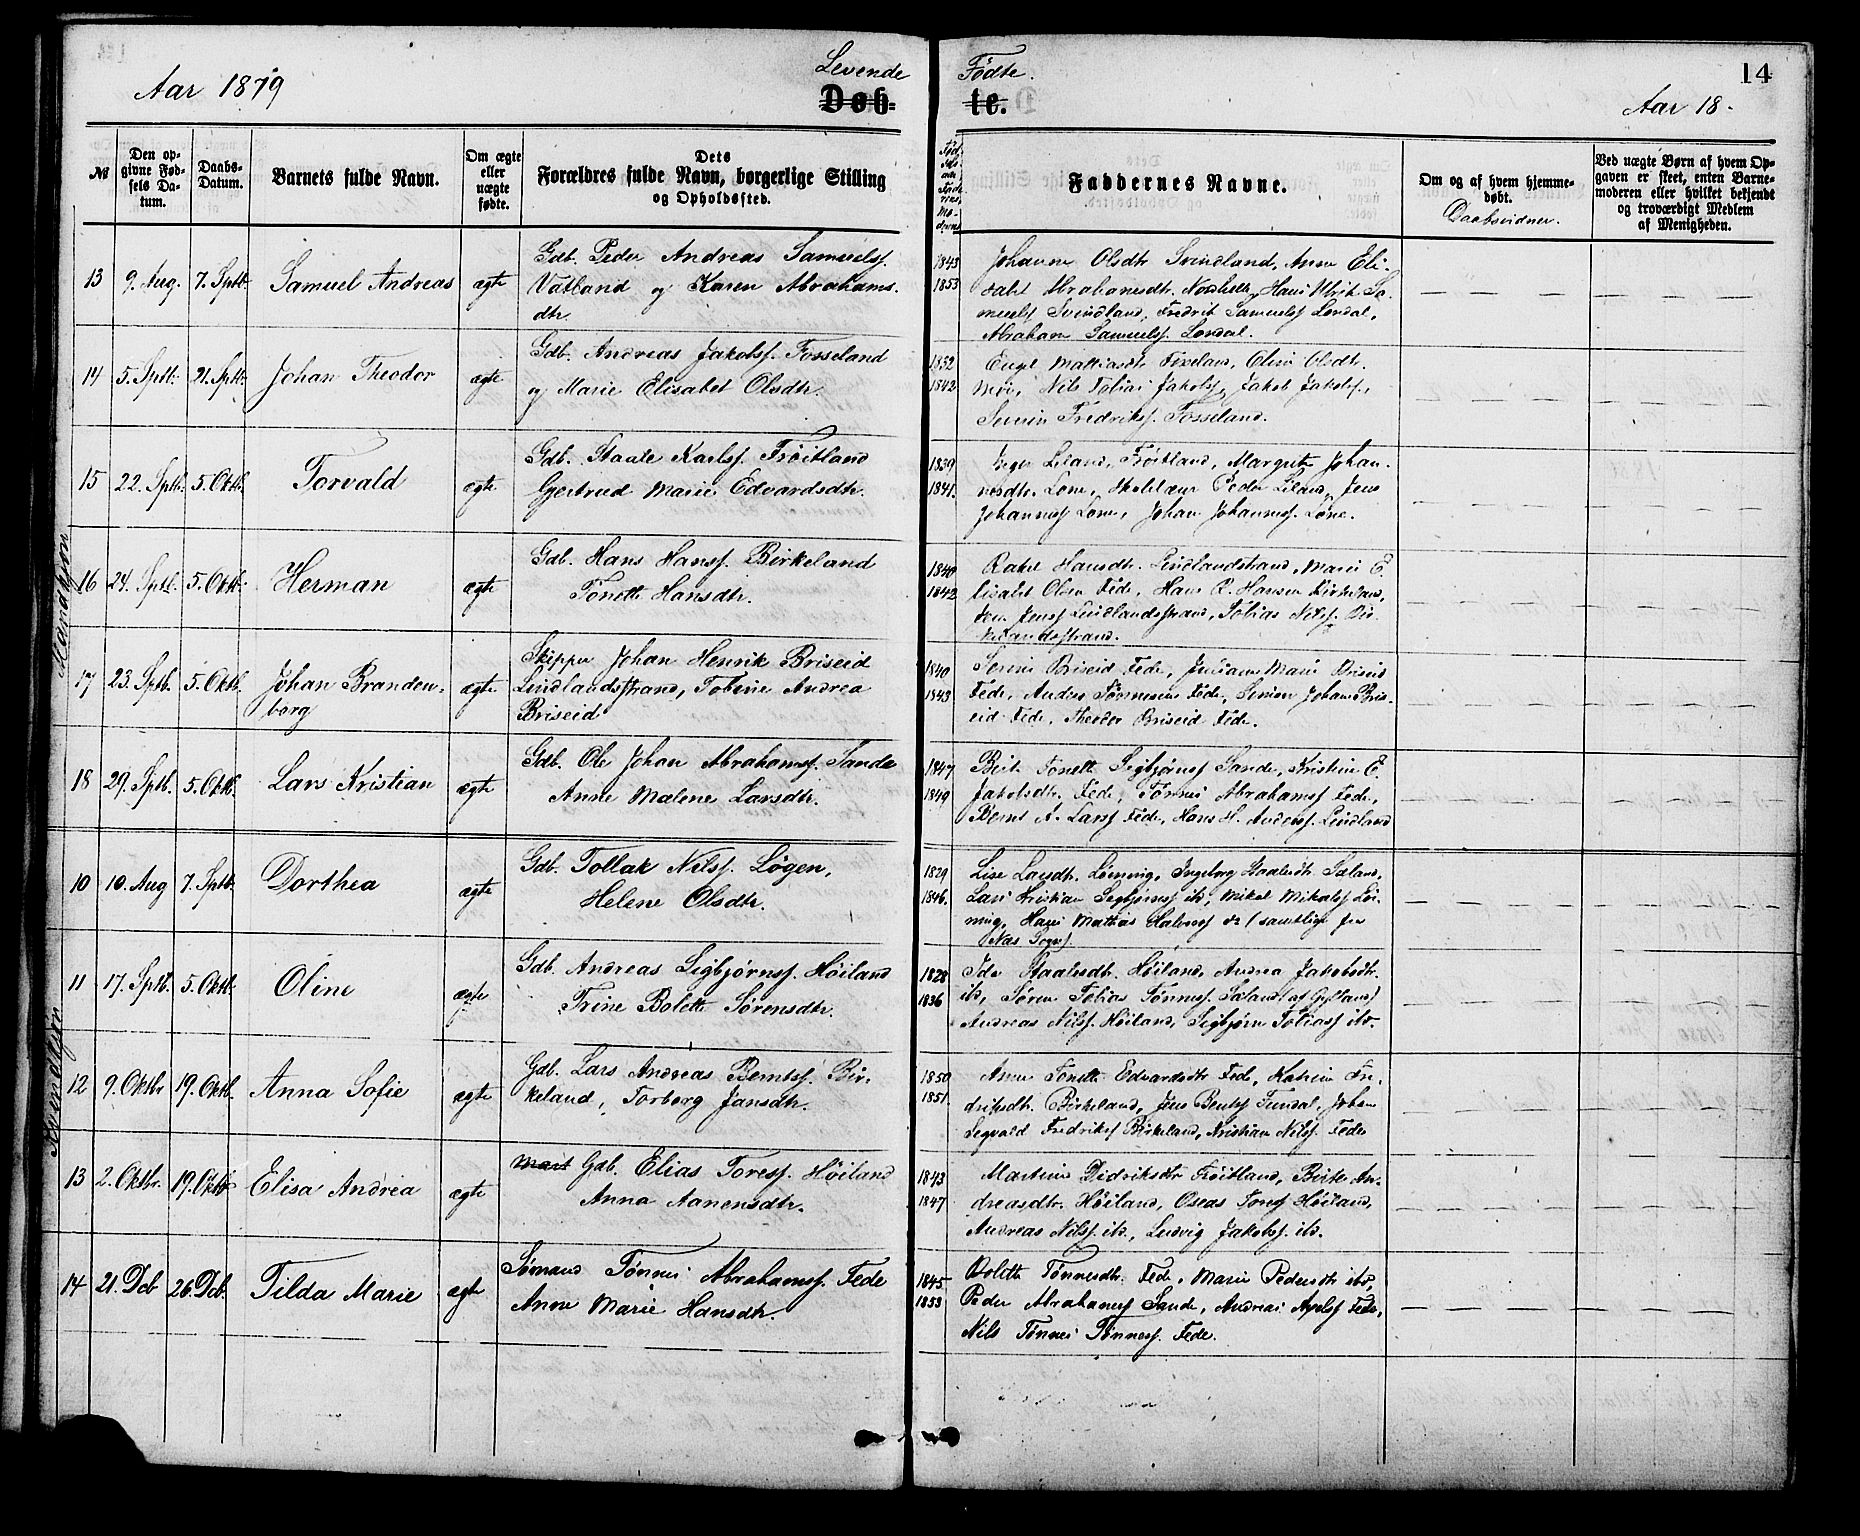 Aar 1879
Levende Fødte.
Døb- te.
14
Aar 18
№
Den op-
givne Fød-
sels Da-
tum.
Daabs-
Datum.
Barnets fulde Navn.
Om ægte
eller
uægte
fødte.
Dets
Forældres fulde Navn, borgerlige Stilling
og Opholdssted.
Faddernes Navne.
Om og af hvem hjemme-
døbt.
Daabsvidner.
Ved uægte Børn af hvem Op-
gaven er skeet, enten Barne-
moderen eller hvilket bekjendt
og troværdigt Medlem
af Menigheden.
Mandkjøn
13 9. Aug. 7. Sptb. Samuel Andreas ægte
Gdb. Peder Andreas Samuelsf.
Vatland og Karen Abrahams-
dtr.
1843
1853
Johanne Olsdtr Svindland, Anne Eli-
sabet Abrahamsdtr. Hans Ulrik Sa-
muelsf Svindland, Fredrik Samuelsf Lordal,
Abraham Samuelsf. Lordal.
14 5. Sptb. 21. Sptb. Johan Theodor ægte
Gdb. Andreas Jakobsf. Fosseland
og Marie Elisabet Olsdtr.
1832
1842
Engel Olsdtr.
Nils Tobias Jakobsf, Jakob Jakobsf.,
Fredriksf. Fosseland.
15 22. Sptb. 5. Oktb. Torvald ægte
Gdb. Staale Karlsf. Frøitland
Gjertrud Marie Edvardsdtr.
1839
1841.
Inger Liland, Frøitland, Margrete Johan-
nesdtr. Lone, Peder Liland, Jens
Johannesf Lone, Johan Johannesf. Lone.
16 24. Sptb. 5. Oktb. Herman ægte
Gdb. Hans Hansf. Birkeland
Tonette Hansdtr.
1840
1842
Rakel Hansdtr. Lindlandstrand, Marie E-
lisabet Olsen Fede, Hans R. Hansen Birkeland,
Jens Jensf Lindlandsstrand, Tobias Nilsf.
17 23. Sptb. 5. Oktb. Johan Branden-
borg ægte
Skipper Johan Henrik Briseid
Lindlandsstrand, Tobine Andrea
Briseid
1840
1843
Serine Briseid Fede, Juliane Marie Briseid
Fede, Andreas Tønnesen Fede, Simon Johan Bris-
eid Fede, Theodor Briseid Fede.
18 29. Sptb. 5. Oktb. Lars Kristian ægte
Gdb. Ole Johan Abrahamsf. Sande
Anne Malene Larsdtr.
1847
1849
Berte Tonette Sigbjørnsf Sande, Kristine E.
Jakobsdtr. Fede, Tønnes Abrahamsf Fede,
Bernt A. Larsf Fede, Hans H. Andersf. Lindland
Kvindkjøn
10 10. Aug 7. Sptb. Dorthea ægte
Gdb. Tollak Nilsf. Løgen,
Helene Olsdtr.
1829
1846.
Lise Larsdtr. Lønning, Ingeborg Staalesdtr. Sæland,
Lars Kristian Sigbjørnsf ib, Mikal Mikalsf Løn-
ning, Hans Mathias Halvorsf (samtlige fra
Næs Sogn).
11 17. Sptb. 5. Oktb. Oline ægte
Gdb. Andreas Sigbjørnsf. Høiland
Trine Bolette Sørensdtr.
1828
1836
Ida Staalesdtr. Høiland, Andrea Jakobsdtr.
ib, Søren Tobias Tønnesf. Sæland (af Gylland)
Andreas Nilsf. Høiland, Sigbjørn Tobiasf ib.
12 9. Oktbr 19. Oktb. Anna Sofie ægte
Gdb. Lars Andreas Berntsf. Bir-
keland, Torborg Jansdtr.
1850
1851.
Anne Tonette Edvardsdtr Fede, Katrine Fre-
driksdtr. Birkeland, Jens Bentsf Sundal, Johan
Segvald Fredriksf Birkeland, Kristian Nilsf. Fede
13 2. Oktbr. 19. Oktb. Elisa Andrea ægte
Gdb. Elias Toresf. Høiland
Anna Aanensdtr.
1843
1847
Martine Didriksdtr Frøitland, Berte An-
dreasdtr. Høiland, Oseas Toresf Høiland,
Andreas Nilsf. ib., Ludvig Jakobsf. ib.
14 21. Dcb 26. Dcb. Tilda Marie ægte
Sømand Tønnes Abrahamsf. Fede
Anne Marie Hansdtr.
1845
1853
Bolette Tønnesdtr. Fede, Marie Pedersdtr ib,
Peder Abrahamsf Sande, Andreas Axelsf Fede,
Nils Tønnes Tønnesf. Fede.